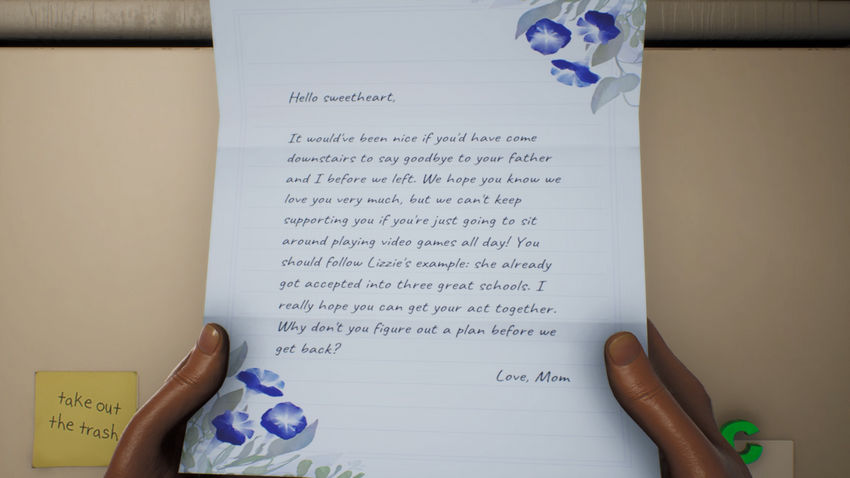 Hello sweetheart,
It would've been nice if you'd have come
downstairs to say goodbye to your father
and I before we left. We hope you know we
love you very much, but we can't keep
supporting you if you're just going to sit
around playing video games all day! You
should follow Lizzie's example: she already
got accepted into three great schools. I
really hope you can get your act together.
Why don't you figure out a plan before we
get back?
Love, Mom
take out
the trash
C